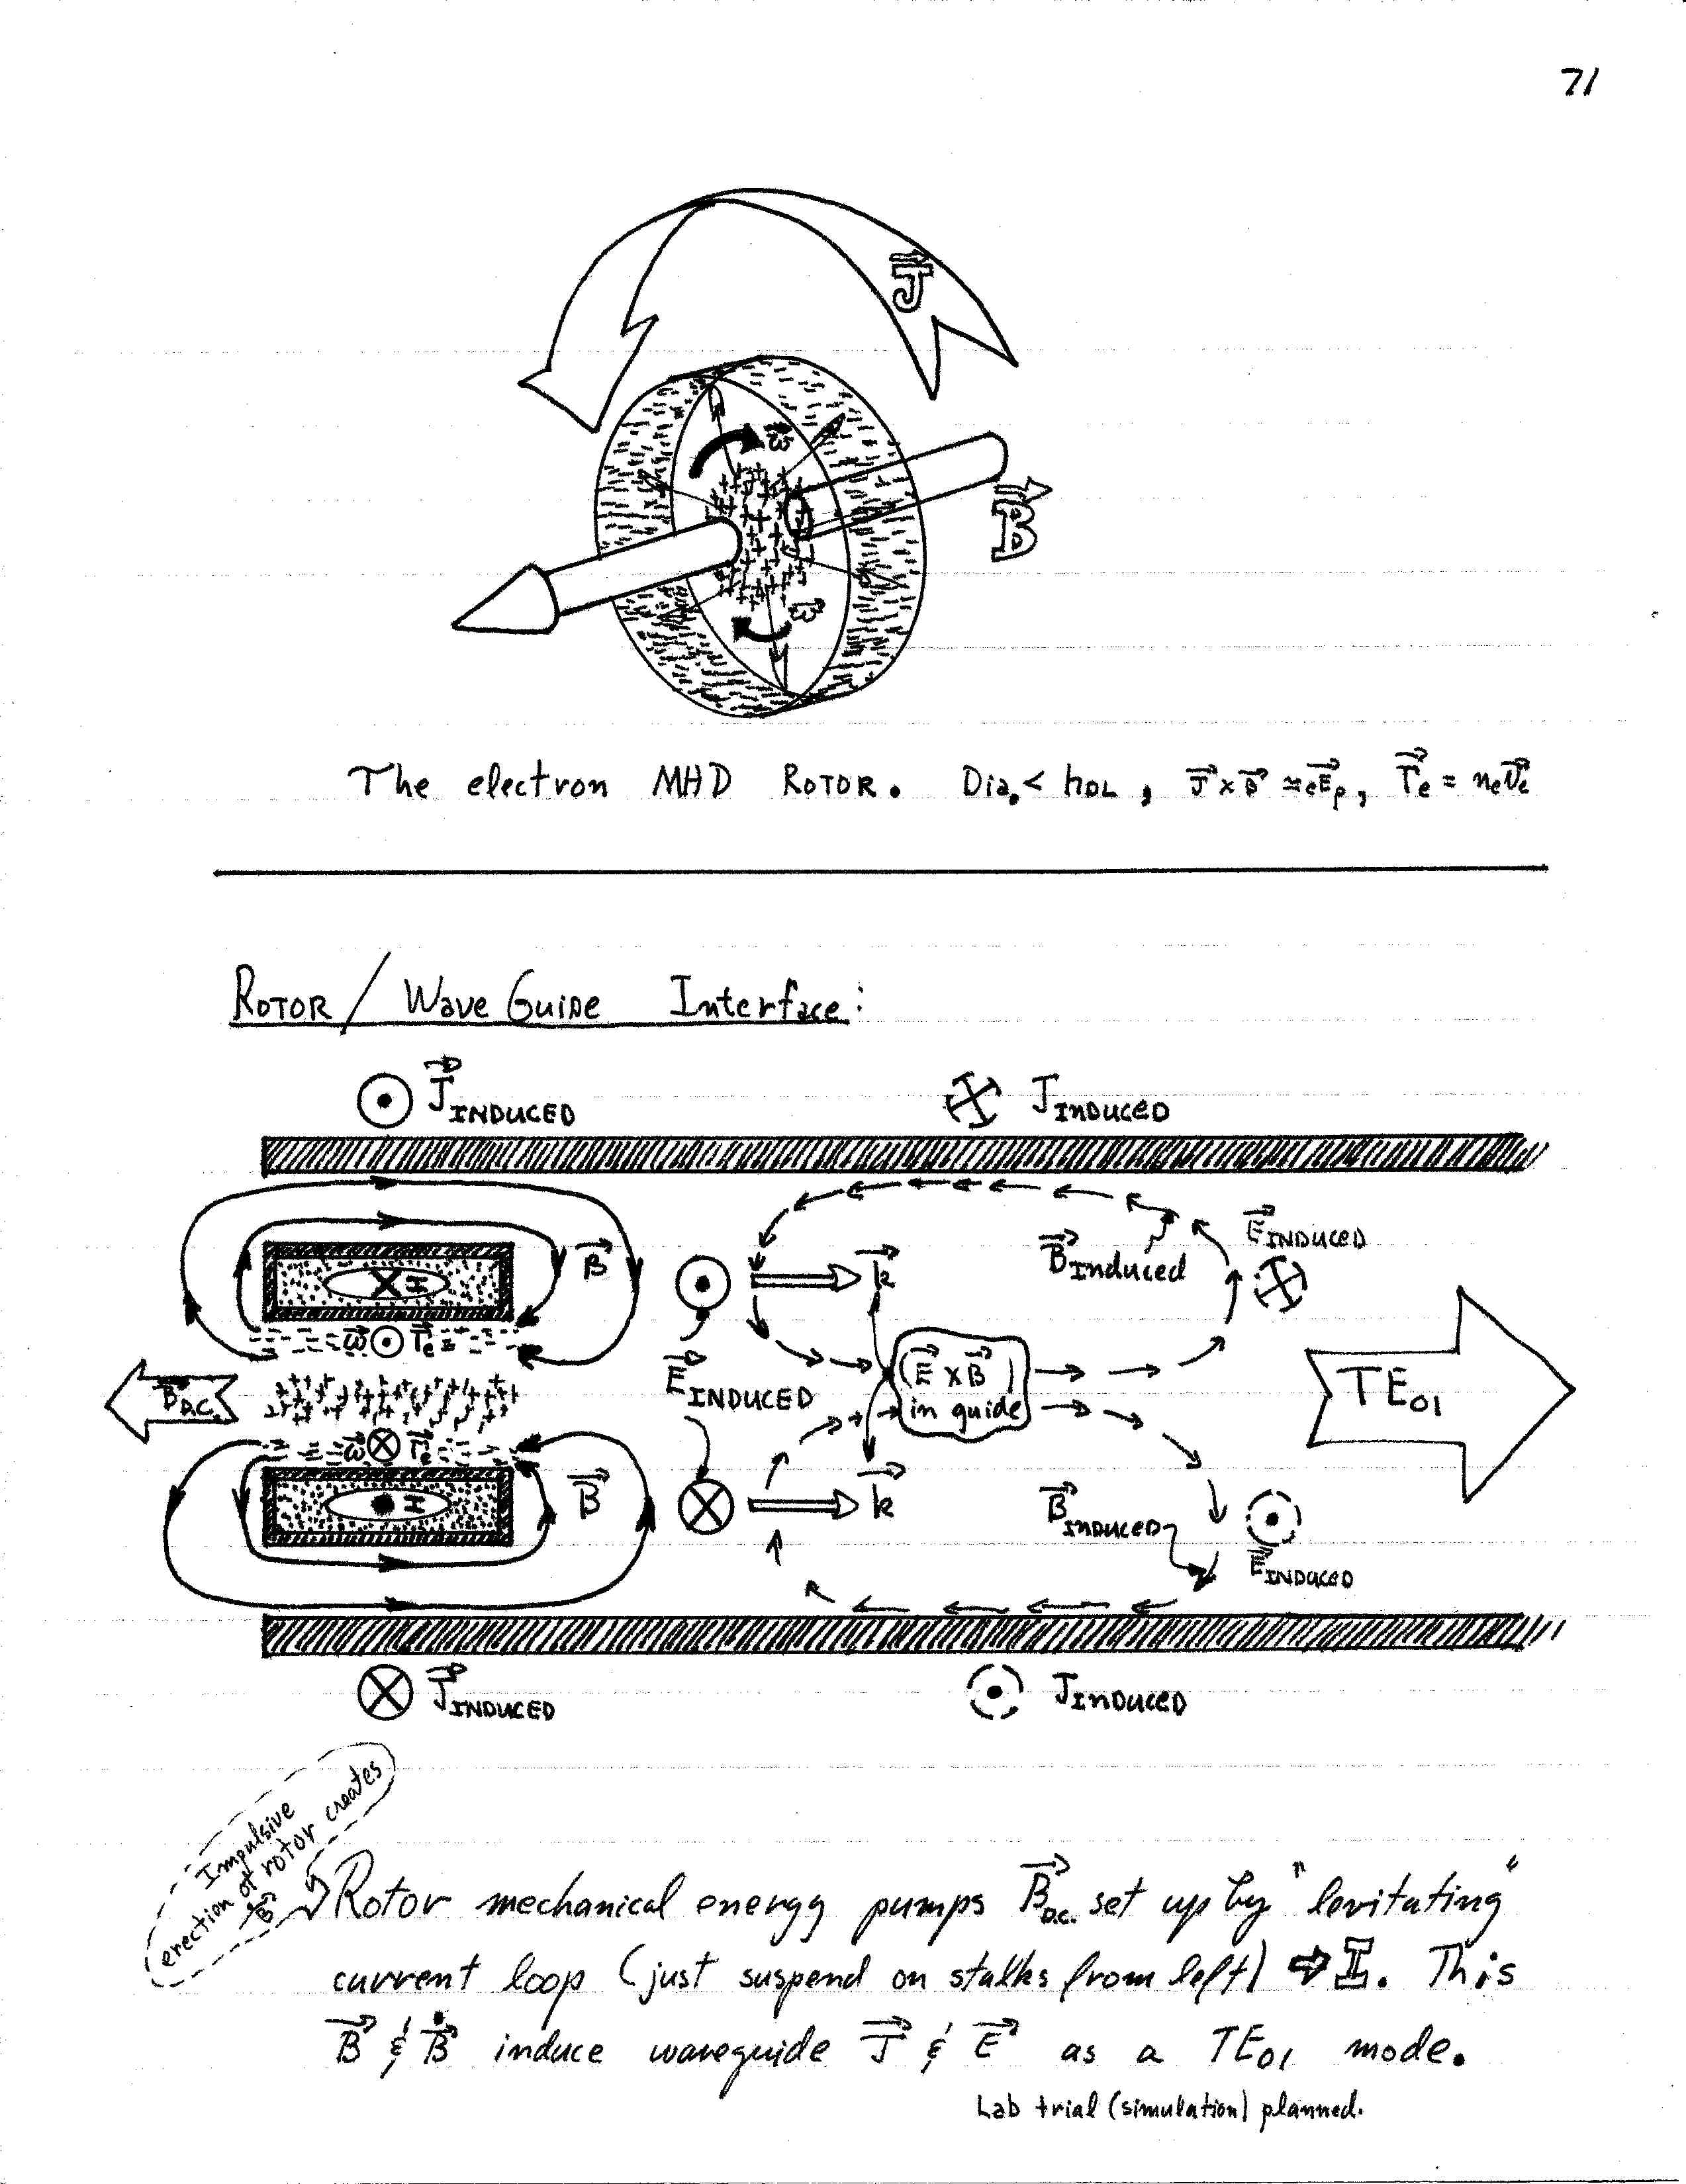 71
J
ω
B
ω
The electron MHD ROTOR. Dia. < hDL , J × B ≈ eEp, Γe = neve
ROTOR / Wave Guide Interface:
J INDUCED
J INDUCED
E INDUCED
B
B Induced
k
I
ω Γe
(E × B)
in guide
TE01
B D.C.
E INDUCED
ω Γe
I
B
k
B INDUCED
E INDUCED
J INDUCED
J INDUCED
Impulsive
erection of rotor creates
B
Rotor mechanical energy pumps B D.C. set up by "levitating"
current loop (just suspend on stalks from left) ⇒ I. This
B & Ḃ induce waveguide J & E as a TE01 mode.
Lab trial (simulation) planned.